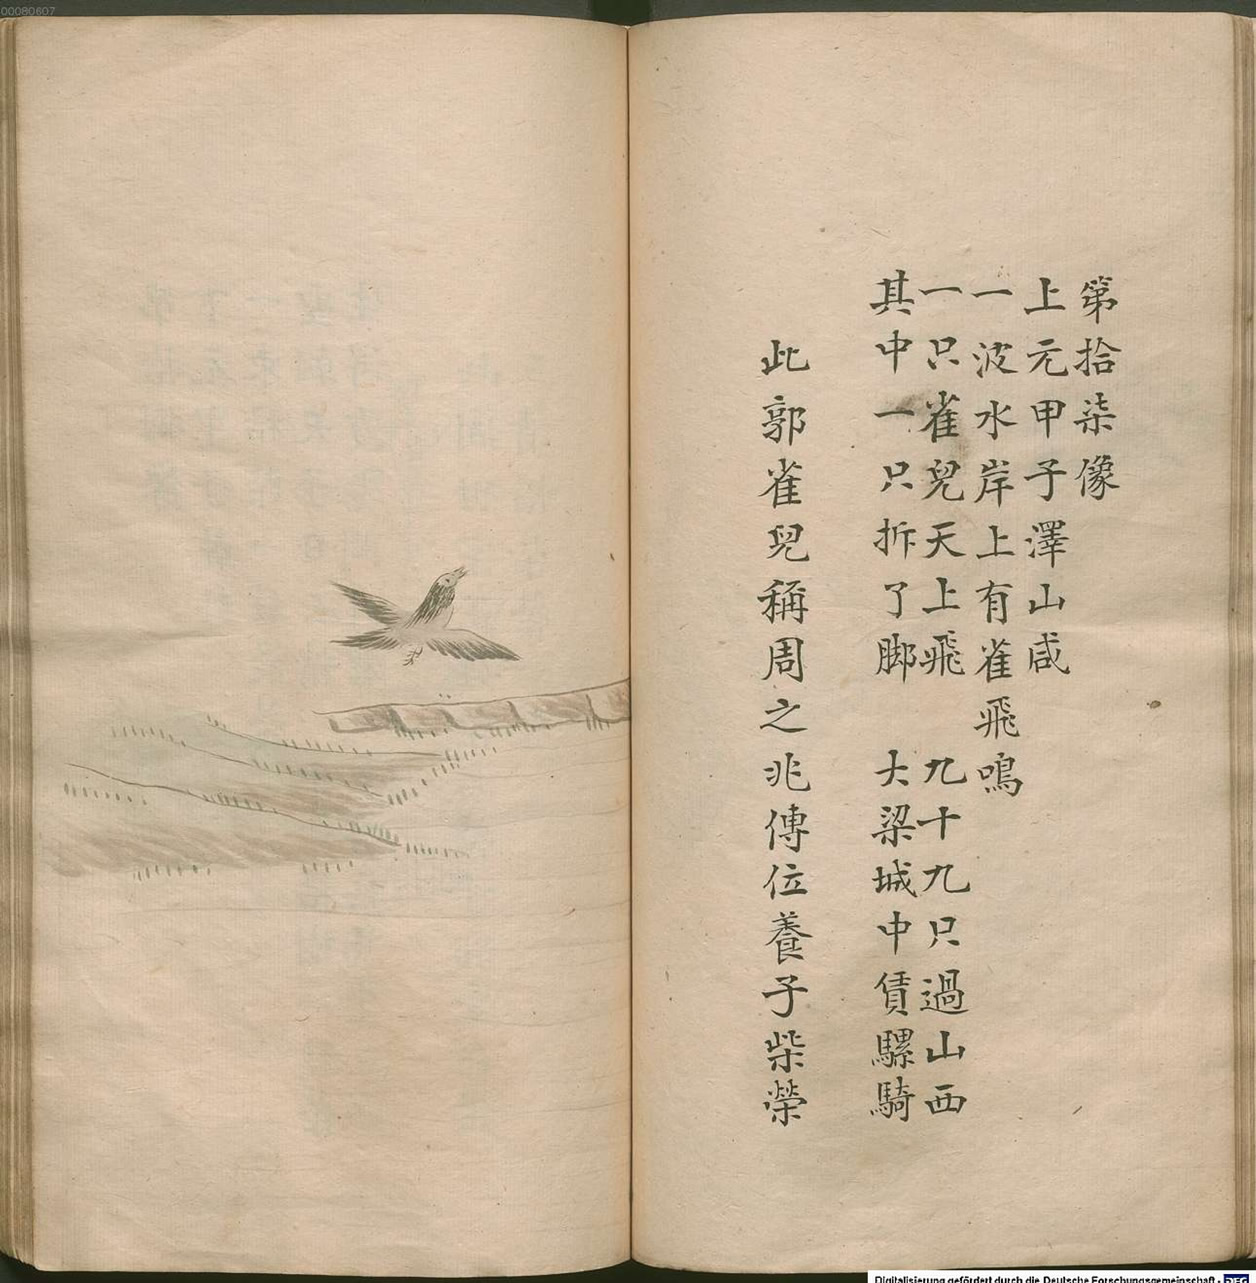 第拾柒像
上元甲子澤山咸
一波水岸上有雀飛鳴
一只雀兒天上飛 九十九只過山西
其中一只拆了脚 大梁城中賃騾騎
此郭雀兒稱周之兆傳位養子柴榮
00080607
Digitalisierung gefördert durch die Deutsche Forschungsgemeinschaft -